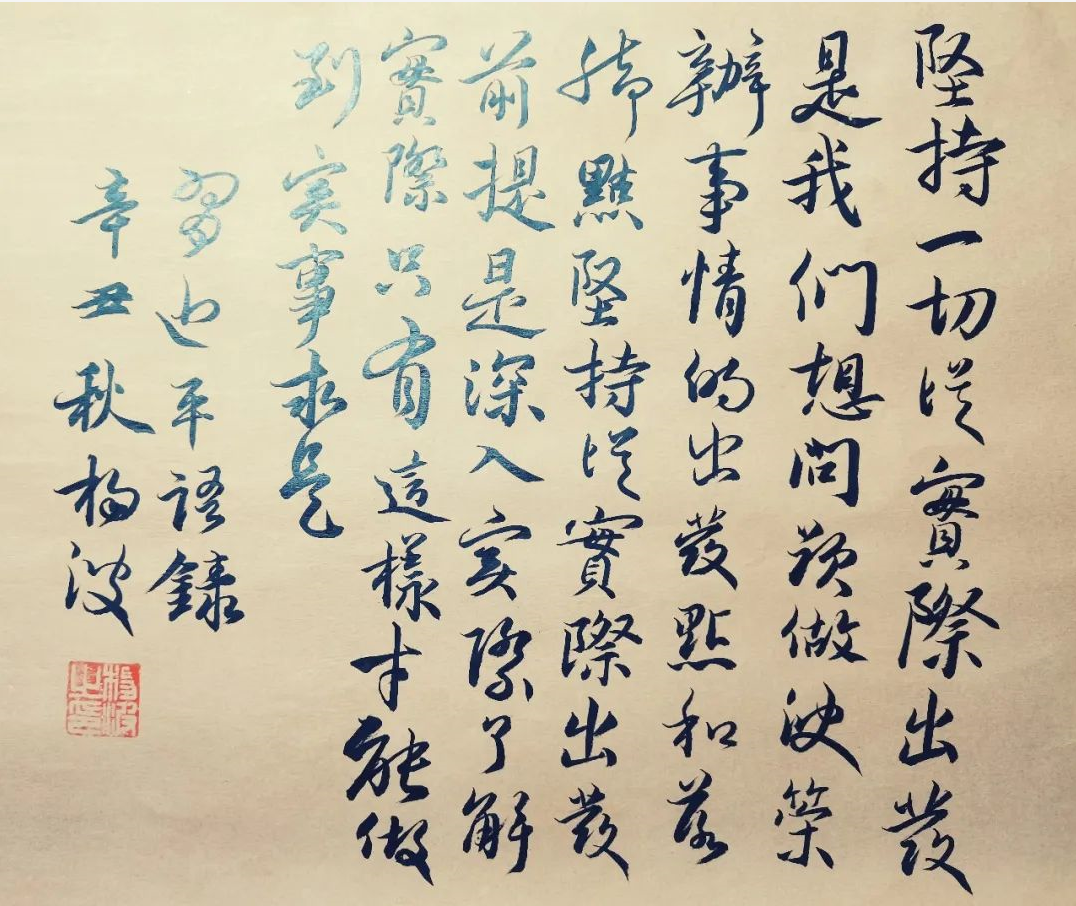 堅持一切從實際出發
是我們想問題做決策
辦事情的出發點和落
腳點堅持從實際出發
前提是深入实際了解
實際只有這樣才能做
到实事求是
習近平語錄
辛丑秋楊波
楊波之印